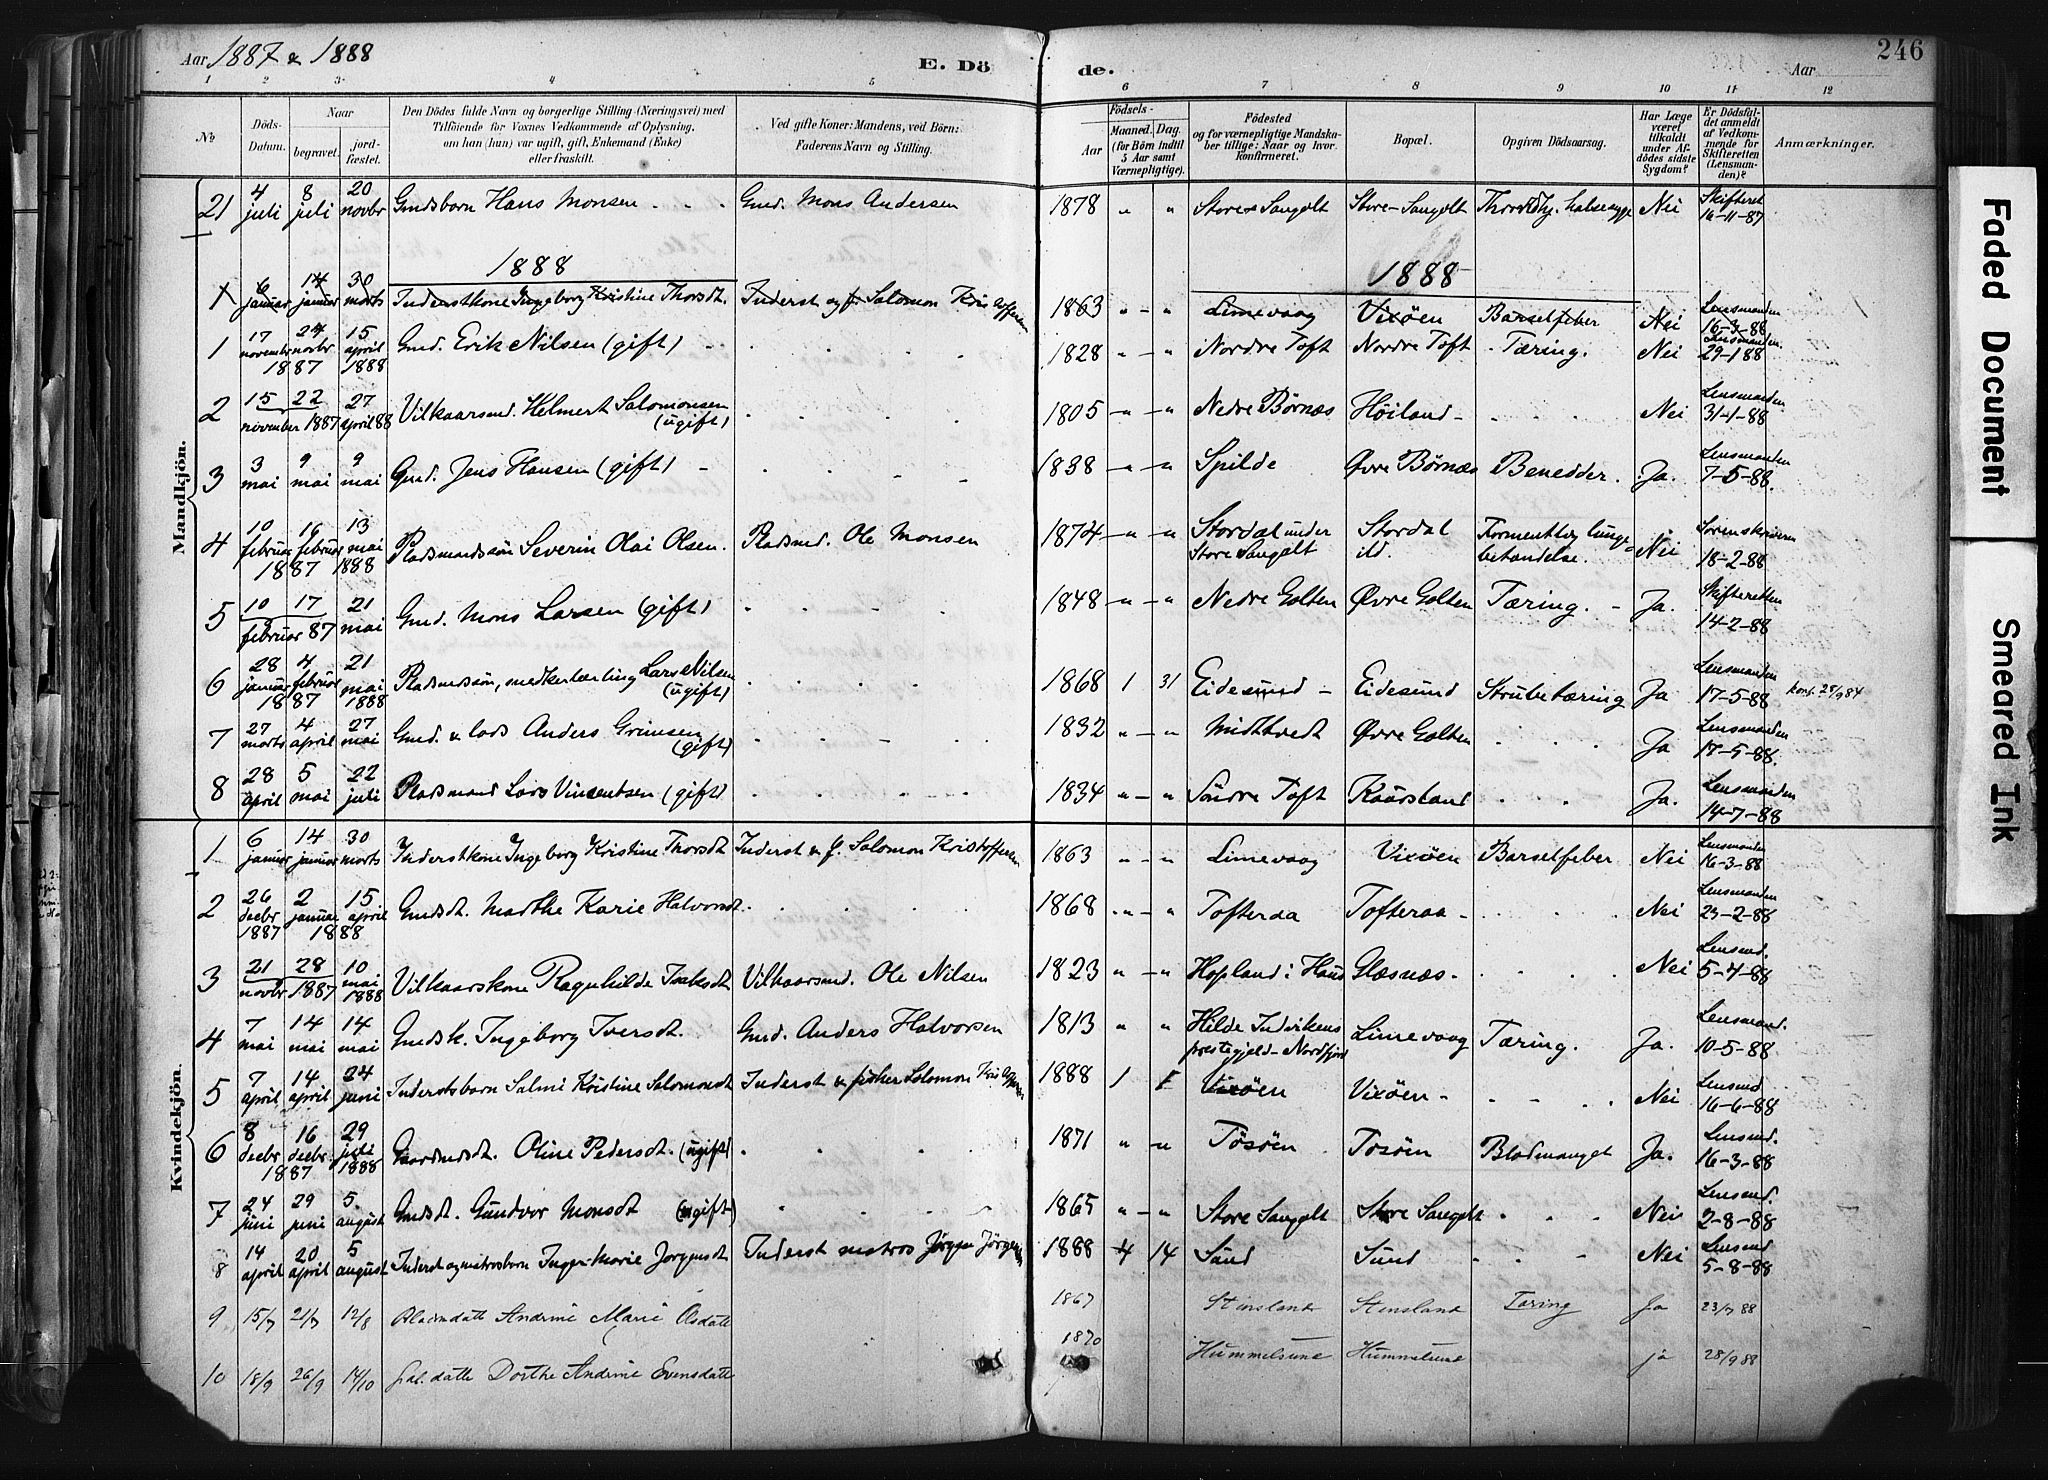 Aar 1887 & 1888 E. Döde. Aar 246
1 2 3 4 5 6 7 8 9 10 11 12
№ Döds-Datum. Naar begravet. jord-fæstet. Den Dödes fulde Navn og borgerlige Stilling (Næringsvei) med Tilföiende for Voxnes Vedkommende af Oplysning, om han (hun) var ugift, gift, Enkemand (Enke) eller fraskilt. Ved gifte Koner: Mandens, ved Börn: Faderens Navn og Stilling. Födsels- Aar Maaned. Dag. (for Börn indtil 5 Aar samt Værnepligtige). Födested og for værnepligtige Mandskaber tillige: Naar og hvor konfirmeret. Bopæl. Opgiven Dödsaarsag. Har Læge været tilkaldt under Afdödes sidste Sygdom? Er Dödsfaldet anmeldt af Vedkommende for Skifteretten (Lensmanden)? Anmærkninger.
Mandkjön.
21 4 juli 8 juli 20 novbr Gmdsbarn Hans Monsen Gmd. Mons Andersen 1878 " " Store-Sangolt Store-Sangolt halsesyge Nei Skifteret 16-11-87
1888 1888
1 6 januar 14 januar 30 marts Inderstkone Ingeborg Kristine Thorsdt. Inderst og f. Salomon Kristoffersen 1863 " " Limevaag Vixöen Barselfeber Nei Lensmanden 16-3-88
1 17 novembr 24 novbr 1887 15 april 1888 Gmd. Erik Nilsen (gift) 1828 " " Nordre Toft Nordre Toft Tæring. Nei Lensmanden. 29-1 88
2 15 22 november 1887 27 april 88 Vilkaarsmd. Helmert Salomonsen (ugift) 1805 " " Nedre Börnæs Höiland Nei Lensmanden 31-1-88
3 3 mai 9 mai 9 mai Gmd. Jens Hansen (gift) 1838 " " Spilde Øvre Börnæs Benedder. Ja. Lensmanden 7-5-88.
4 10 februar 16 februar 1887 13 mai 1888 Pladsmandssön Severin Olai Olsen. Pladsmd. Ole Monsen 1874 " " Stordal under Store Sangolt Stordal ild. lungebetændelse. Nei Sorenskriveren 18-2-88
5 10 17 februar 87 21 mai Gmd. Mons Larsen (gift) 1848 " " Nedre Golten Øvre Golten Tæring. Ja. Skifteretten 14-2-88
6 28 januar 4 februar 1887 21 mai 1888 Pladsmdssön, Lars Nilsen (ugift) 1868 1 31 Eidesund Eidesund Strubetæring Ja Lensmanden 17-5-88
7 27 marts 4 april 27 mai Gmd. & lods Anders Grimsen (gift) 1832 " " Midttvedt Øvre Golten Ja Lensmanden 17-5-88.
8 28 april 5 mai 22 juli Pladsmand Lars Vinsentsen (gift) 1834 " " Söndre Toft Kaursland Ja. Lensmanden 14-7-88
Kvindekjön.
1 6 januar 14 januar 30 marts Inderstkone Ingeborg Kristine Thorsdt Inderst & f. Salomon Kristoffersen 1863 " " Limevaag Vixöen Barselfeber Nei Lensmanden 16-3-88
2 26 decbr 1887 2 januar 15 april 1888 Gmdsdt. Marthe Karie Halvorsdt 1868 " " Tofteraa Tofteraa Nei Lensmanden 23-2-88
3 21 novbr 28 1887 10 mai 1888 Vilkaarskone Ragnhilde Isaksdt Vilkaarsmd. Ole Nilsen 1823 " " Hopland i Haus Glæsnæs. Nei Lensmd. 5-4-88
4 7 mai 14 mai 14 mai Gmdsk. Ingeborg Iversdt. Gmd. Anders Halvorsen 1813 " " Hilde Indvikens prestegjeld-Nordfjord Limevaag Tæring. Ja. Lensmand. 10-5-88
5 7 april 14 april 24 juni Inderstsbarn Salmi Kristine Salomonsdt Inderst & fisker Salomon Kristoffersen 1888 1 Vixöen Vixöen Nei Lensmd 16-6-88
6 8 decbr 16 decbr 1887 29 juli 1888 Gaardmdsdt. Oline Pedersdt. (ugift) 1871 " " Tösöen Tosöen Blodmangel Ja. Lensmd. 16-3-88
7 24 juni 29 juni 5. august Gmdsdt. Gundvor Monsdt (ugift) 1865 " " Store Sangolt Store Sangolt Nei Lensmd. 2-8-88
8 14 april 20 april 5 august Inderst og matrosbarn Inger Marie Jørgensdt Inderst matros Jørgen Jørgensen 1888 4 14 Sund Sund Nei Lensmd 5-8-88
9 15/7 21/7 12/8 Andrine Marie Olsdatt 1867 Stensland Stensland Tæring Ja 23/7 88
10 18/9 26/9 14/10 Dorthe Andrine Evensdatt 1870 Hummelsund Hummelsund ja 28/9 88
Faded Document
Smeared Ink